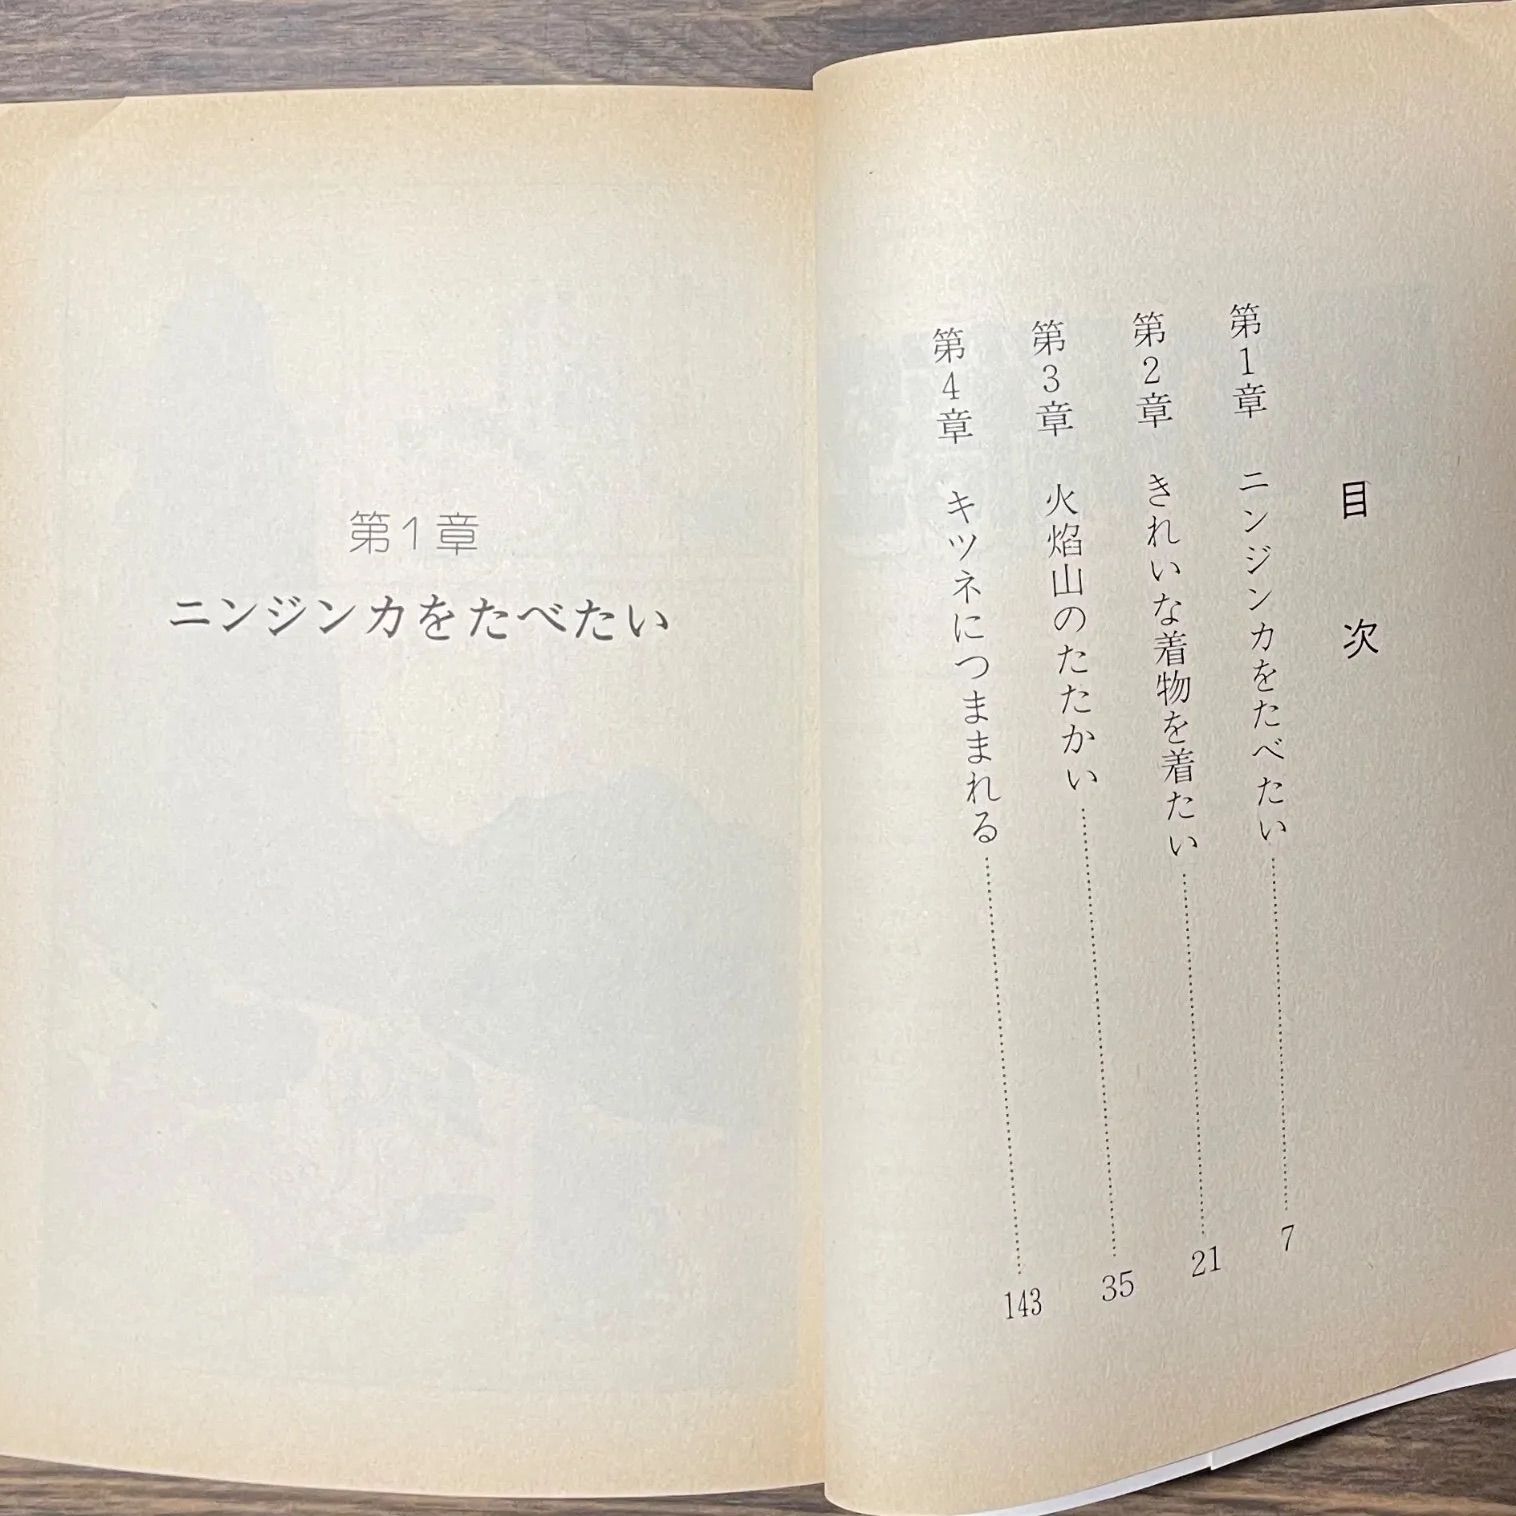 目次
第1章 ニンジンカをたべたい……7
第2章 きれいな着物を着たい……21
第3章 火焰山のたたかい……35
第4章 キツネにつままれる……143
第1章
ニンジンカをたべたい